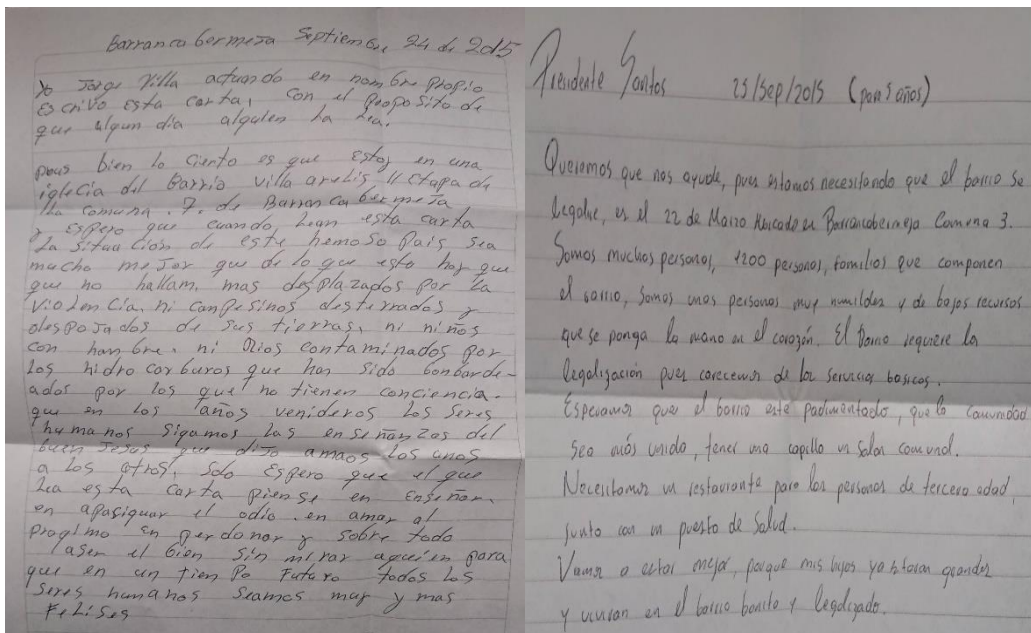 Barrancabermeja Septiembre 24 de 2015
Yo Jorge Villa actuando en nombre propio
Escrivo esta carta, con el proposito de
que algun dia alguien la lea.
pues bien lo ciento es que estoy en una
iglecia del Barrio villa arelis II etapa de
lla comuna .7. de Barrancabermeja
y espero que cuando lean esta carta
La situacion de este hemoso Pais sea
mucho mejor que de lo que esto hoy que
que no hallam, mas desplazados por la
violemcia, ni canpesinos desterrados y
despojados de sus tierras, ni niños
con hanbre, ni Rios contaminados por
los hidrocorburos que han sido bonbarde-
ados por los que no tienen conciencia.
que en los años venideros los seres
humanos sigamos las enseñanzas del
buen Jesus que dijo amaos los unos
a los otros, solo espero que el que
lea esta carta piense en Enseñar,
en apasiguar el odio. en amar al
progimo en perdonar y sobre todo
laser el bien sin mirar aquien para
que en un tiempo Futuro todos los
seres humanos seamos muy y mas
Felises
Presidente Santos 25/Sep/2015 (para 5 años)
Queremos que nos ayude, pues estamos necesitando que el barrio se
legalice, es el 22 de Marzo Ubicado en Barrancabermeja Comuna 3.
Somos muchas personas, 1200 personas, familias que componen
el barrio, somos unas personas muy humildes y de bajos recursos
que se ponga la mano en el corazón. El Barrio requiere la
legalización pues carecemos de los servicios basicos.
Esperamos que el barrio este padimentado, que la comunidad
sea más unida, tener una capilla un salon comunal.
Necesitamos un restaurante para las personas de tercera edad,
junto con un puesto de Salud.
Vamos a estar mejor, porque mis hijos ya estaran grandes
y viviran en el barrio bonito y legalizado.